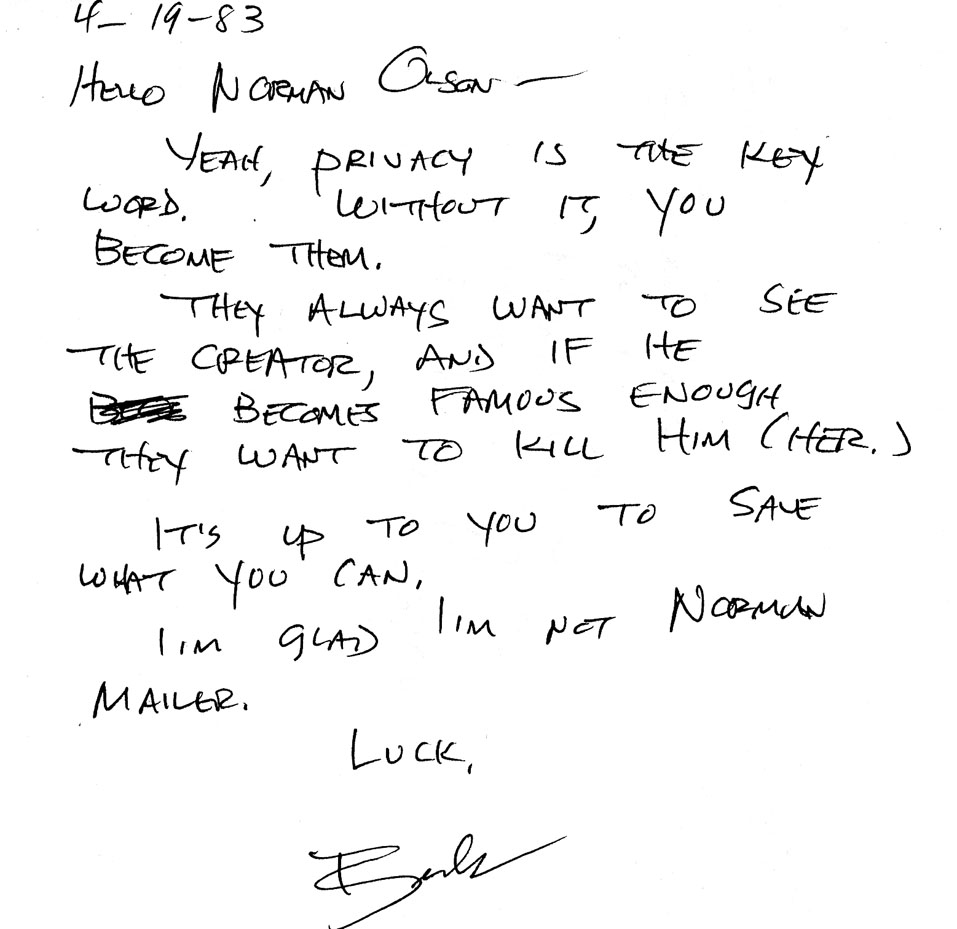 4-19-83
HELLO NORMAN OLSON —
YEAH, PRIVACY IS THE KEY
WORD. WITHOUT IT, YOU
BECOME THEM.
THEY ALWAYS WANT TO SEE
THE CREATOR, AND IF HE
BECOMES FAMOUS ENOUGH
THEY WANT TO KILL HIM (HER.)
IT'S UP TO YOU TO SAVE
WHAT YOU CAN.
I'M GLAD I'M NOT NORMAN
MAILER.
LUCK,
Buk